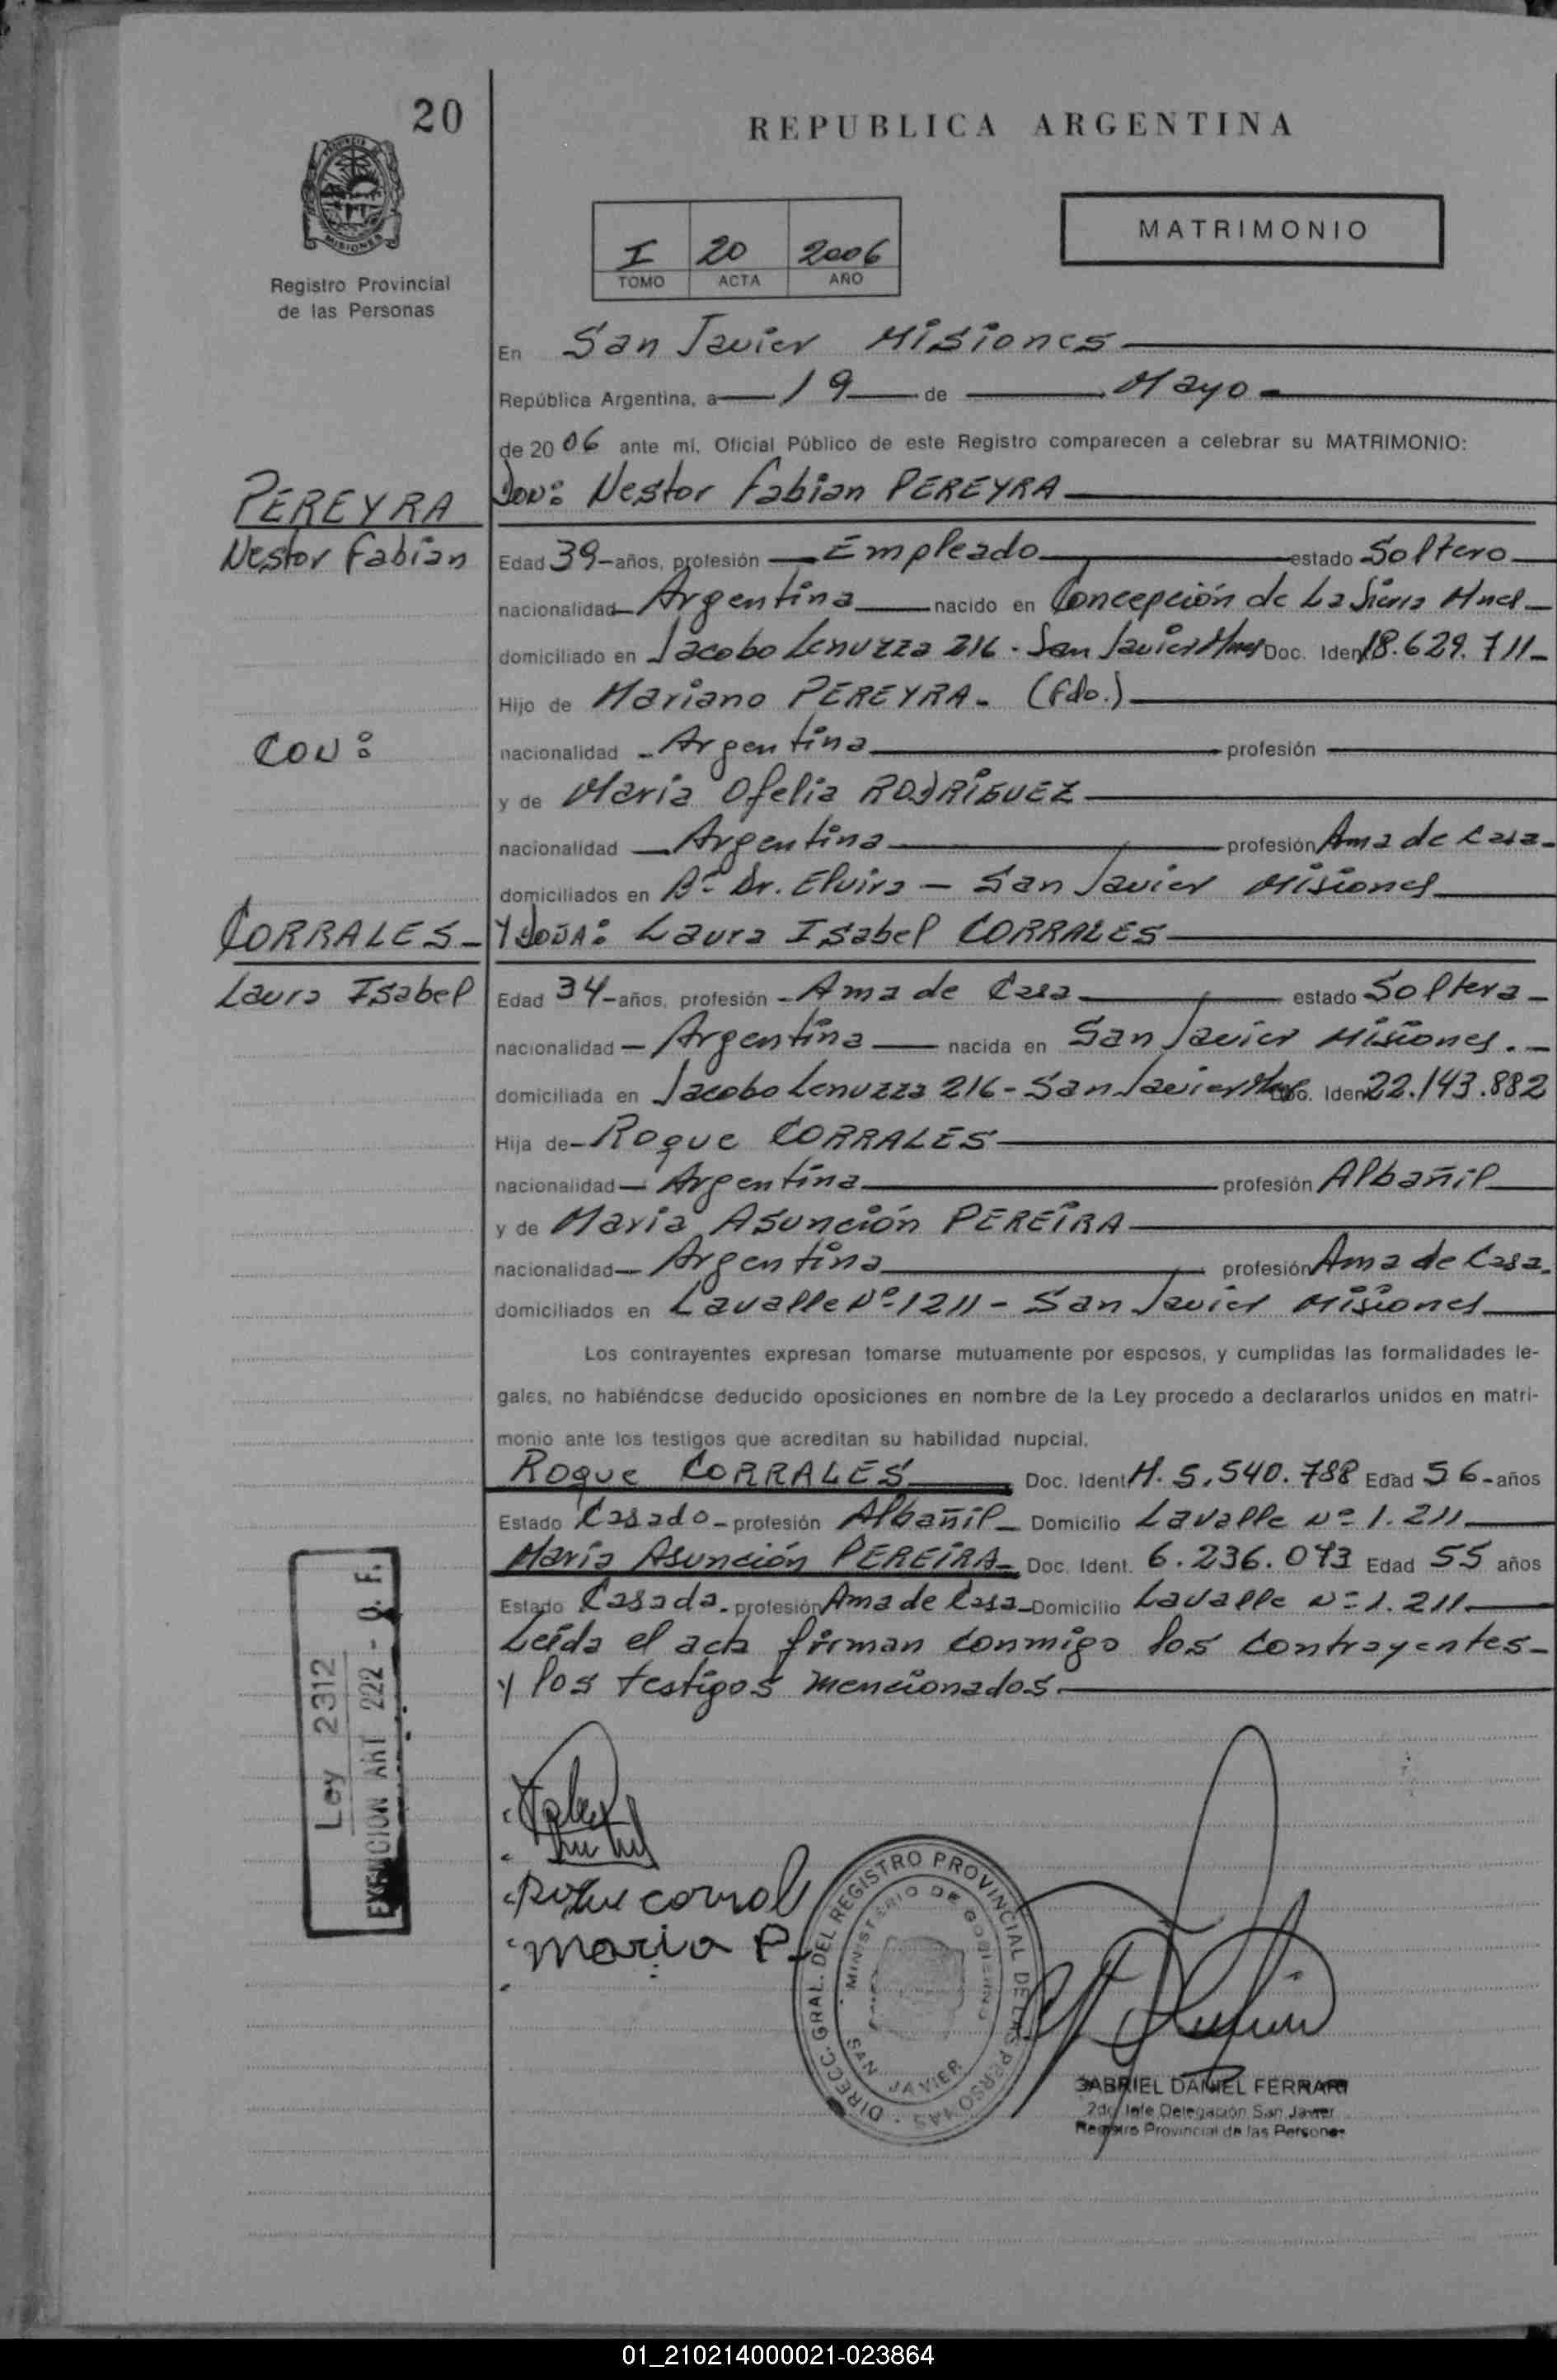 20
REPUBLICA ARGENTINA
MISIONES
Registro Provincial
de las Personas
I 20 2006
TOMO ACTA AÑO
MATRIMONIO
En San Javier Misiones
República Argentina, a 19 de Mayo
de 2006 ante mí, Oficial Público de este Registro comparecen a celebrar su MATRIMONIO:
PEREYRA
Nestor Fabian
Don: Nestor Fabian PEREYRA
Edad 39 años, profesión Empleado estado Soltero
nacionalidad Argentina nacido en Concepción de La Sierra Mnes
domiciliado en Jacobo Lenuzza 216 - San Javier Mnes Doc. Iden 18.629.711
Hijo de Mariano PEREYRA. (Fdo.)
CON:
nacionalidad Argentina profesión
y de Maria Ofelia RODRÍGUEZ
nacionalidad Argentina profesión Ama de Casa
domiciliados en B° Dr. Elvira - San Javier Misiones
CORRALES
Laura Isabel
Y DOÑA: Laura Isabel CORRALES
Edad 34 años, profesión Ama de Casa estado Soltera
nacionalidad Argentina nacida en San Javier Misiones.
domiciliada en Jacobo Lenuzza 216 - San Javier Mnes Doc. Iden 22.143.882
Hija de Roque CORRALES
nacionalidad Argentina profesión Albañil
y de Maria Asunción PEREIRA
nacionalidad Argentina profesión Ama de Casa
domiciliados en Lavalle N° 1211 - San Javier Misiones
Los contrayentes expresan tomarse mutuamente por esposos, y cumplidas las formalidades le-
gales, no habiéndose deducido oposiciones en nombre de la Ley procedo a declararlos unidos en matri-
monio ante los testigos que acreditan su habilidad nupcial.
Roque CORRALES Doc. Ident M. 5.540.788 Edad 56 años
Estado Casado profesión Albañil Domicilio Lavalle N° 1.211
María Asunción PEREIRA Doc. Ident. 6.236.073 Edad 55 años
Estado Casada profesión Ama de Casa Domicilio Lavalle N° 1.211
Leída el acta firman conmigo los contrayentes
y los testigos mencionados.
Ley 2312
EXENCION ART 222 - O. F.
Maria P
DIRECC. GRAL. DEL REGISTRO PROVINCIAL DE LAS PERSONAS
MINISTERIO DE GOBIERNO
SAN JAVIER
GABRIEL DANIEL FERRARI
2do Jefe Delegación San Javier
Registro Provincial de las Personas
01_210214000021-023864